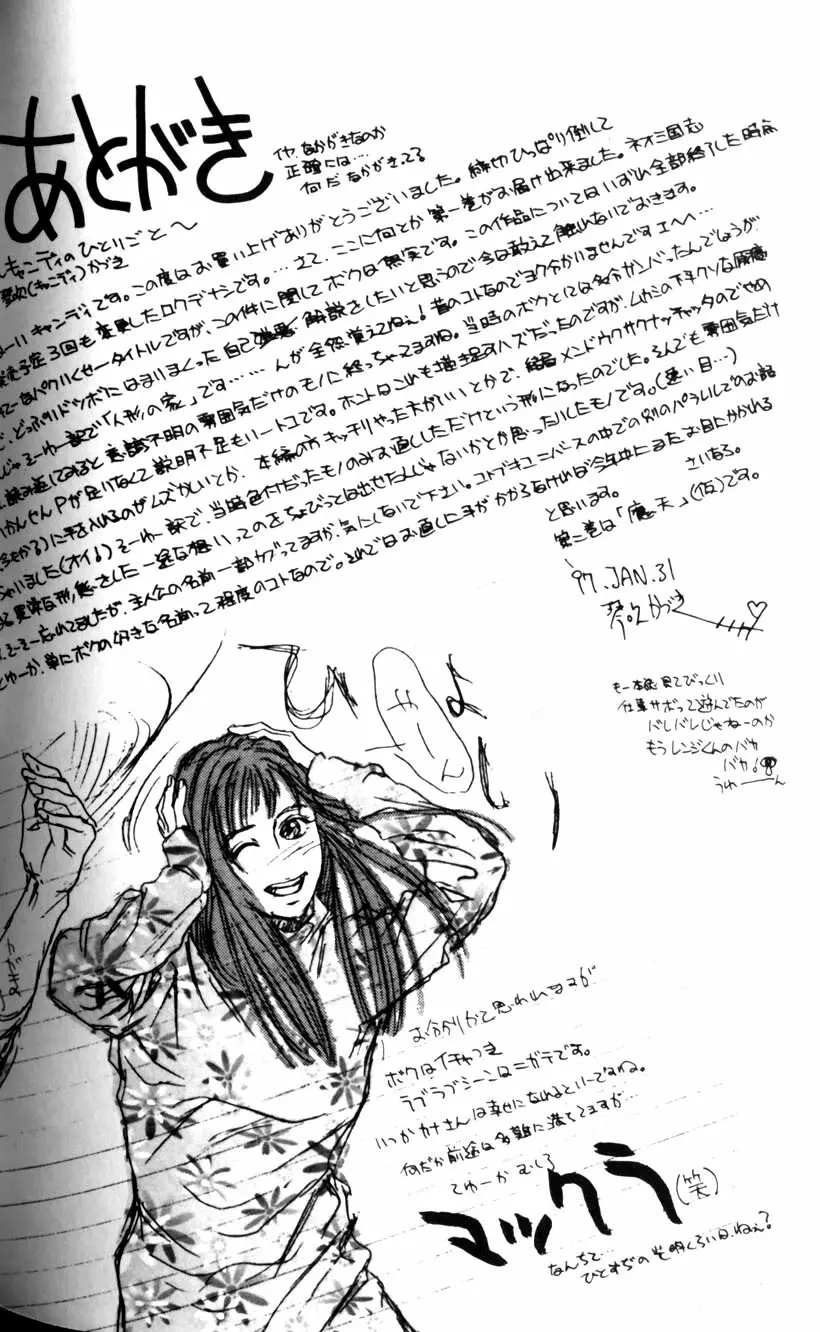 あとがき
イヤ、なかがきなのか
正確には…
何だ なかがきってる
キャンディのひとりごと〜
歓(キャンディ)かづき
キャンディです。この度はお買い上げありがとうございました。締切ひっぱり倒して
発売予定3回も変更したロクデナシです。……さて、ここに何とか第一巻がお届け出来ました。ネオ三国志
パクリくせータイトルですが、この件に関してボクは無実です。この作品についてはいずれ全部終了した時点
どっぷりドツボにはまりまくった自己 解説をしたいと思うので今は敢えて触れないでおきます。
じゃそーゆー訳で「人形の家」です………んが全然覚えてねぇ!昔のコトなのでヨク分かいませんですエヘヘ…
読み返してみると意識不明の雰囲気だけのモノに終っちゃってますね。当時のボクとしては多分ガンバったんでしょうが
かんせんPが足いなくて説明不足もいートコです。ホントはこれも描き足すハズだったのですが、ムカシの下手クソな原稿
に手を入れるのがムズかしいとか、本編の方キッチリやった方がいいとかで、結局メンドウクサクナッチャッタのでやめ
ちゃいました(オイ!)そーゆー訳で、当時色付だったモノのみお直ししただけという形になったのでした。それでも雰囲気だけ
異常な形、 した一途な想いってのをちょびっとは出せたんじゃないかとか思ったりしたモノです。(遠い目…)
そーそー忘れてましたが、主人公の名前一部カブってますが、気にしないで下さい。コトブキユニバースの中での別のパラレルでのお話
とゆーか、単にボクの好きな名前って程度のコトなので。それではお直しに手がかからなければ今年中にまたお目にかかれる
と思います。
さいなら。
第二巻は「魔天」(仮)です。
'97.JAN.31
琴吹かづき
もー本誌見てびっくり
仕事サボって遊んでたのが
バレバレじゃねーのか
もうレンジくんのバカ
バカ!
うゅーーん
ひょ
せーん
いい
お分かりかと思われますが
ボクはイチャつき
ラブラブシーンはニガテです。
いつかカナさんは幸せになれるといーですね。
何だか前途は多難に満ちてますが…
てゆーか むしろ
マックラ(笑)
なんちて…
ひとすぢの光明くらい ねぇ?